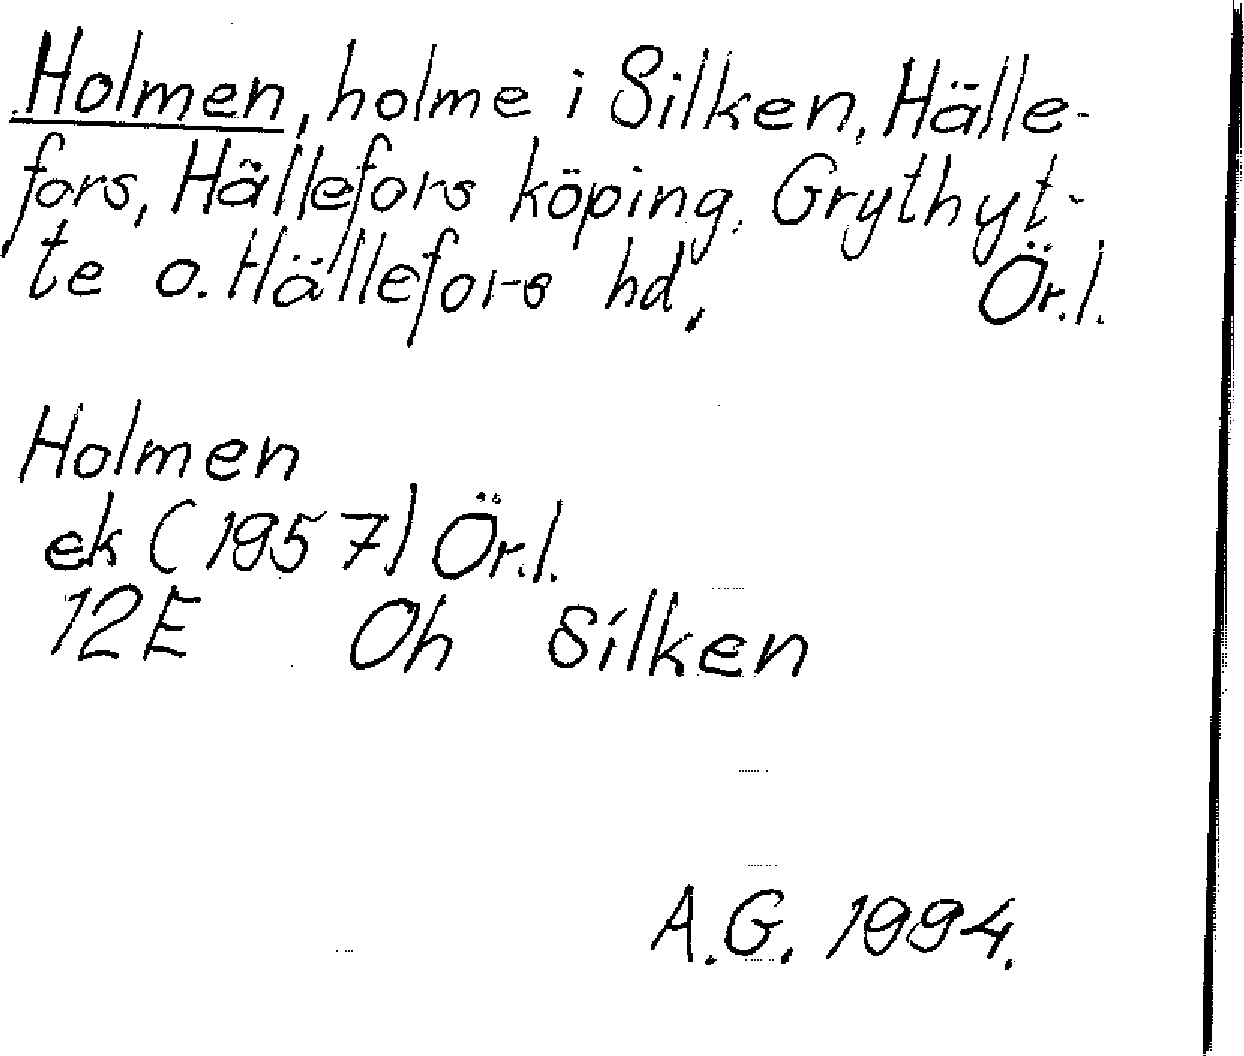 Holmen, holme i Silken, Hälle-
fors, Hällefors köping, Grythyt-
te o. Hällefors hd, Ör.l.
Holmen
ek (1957) Ör.l.
12E Oh Silken
A.G. 1994.